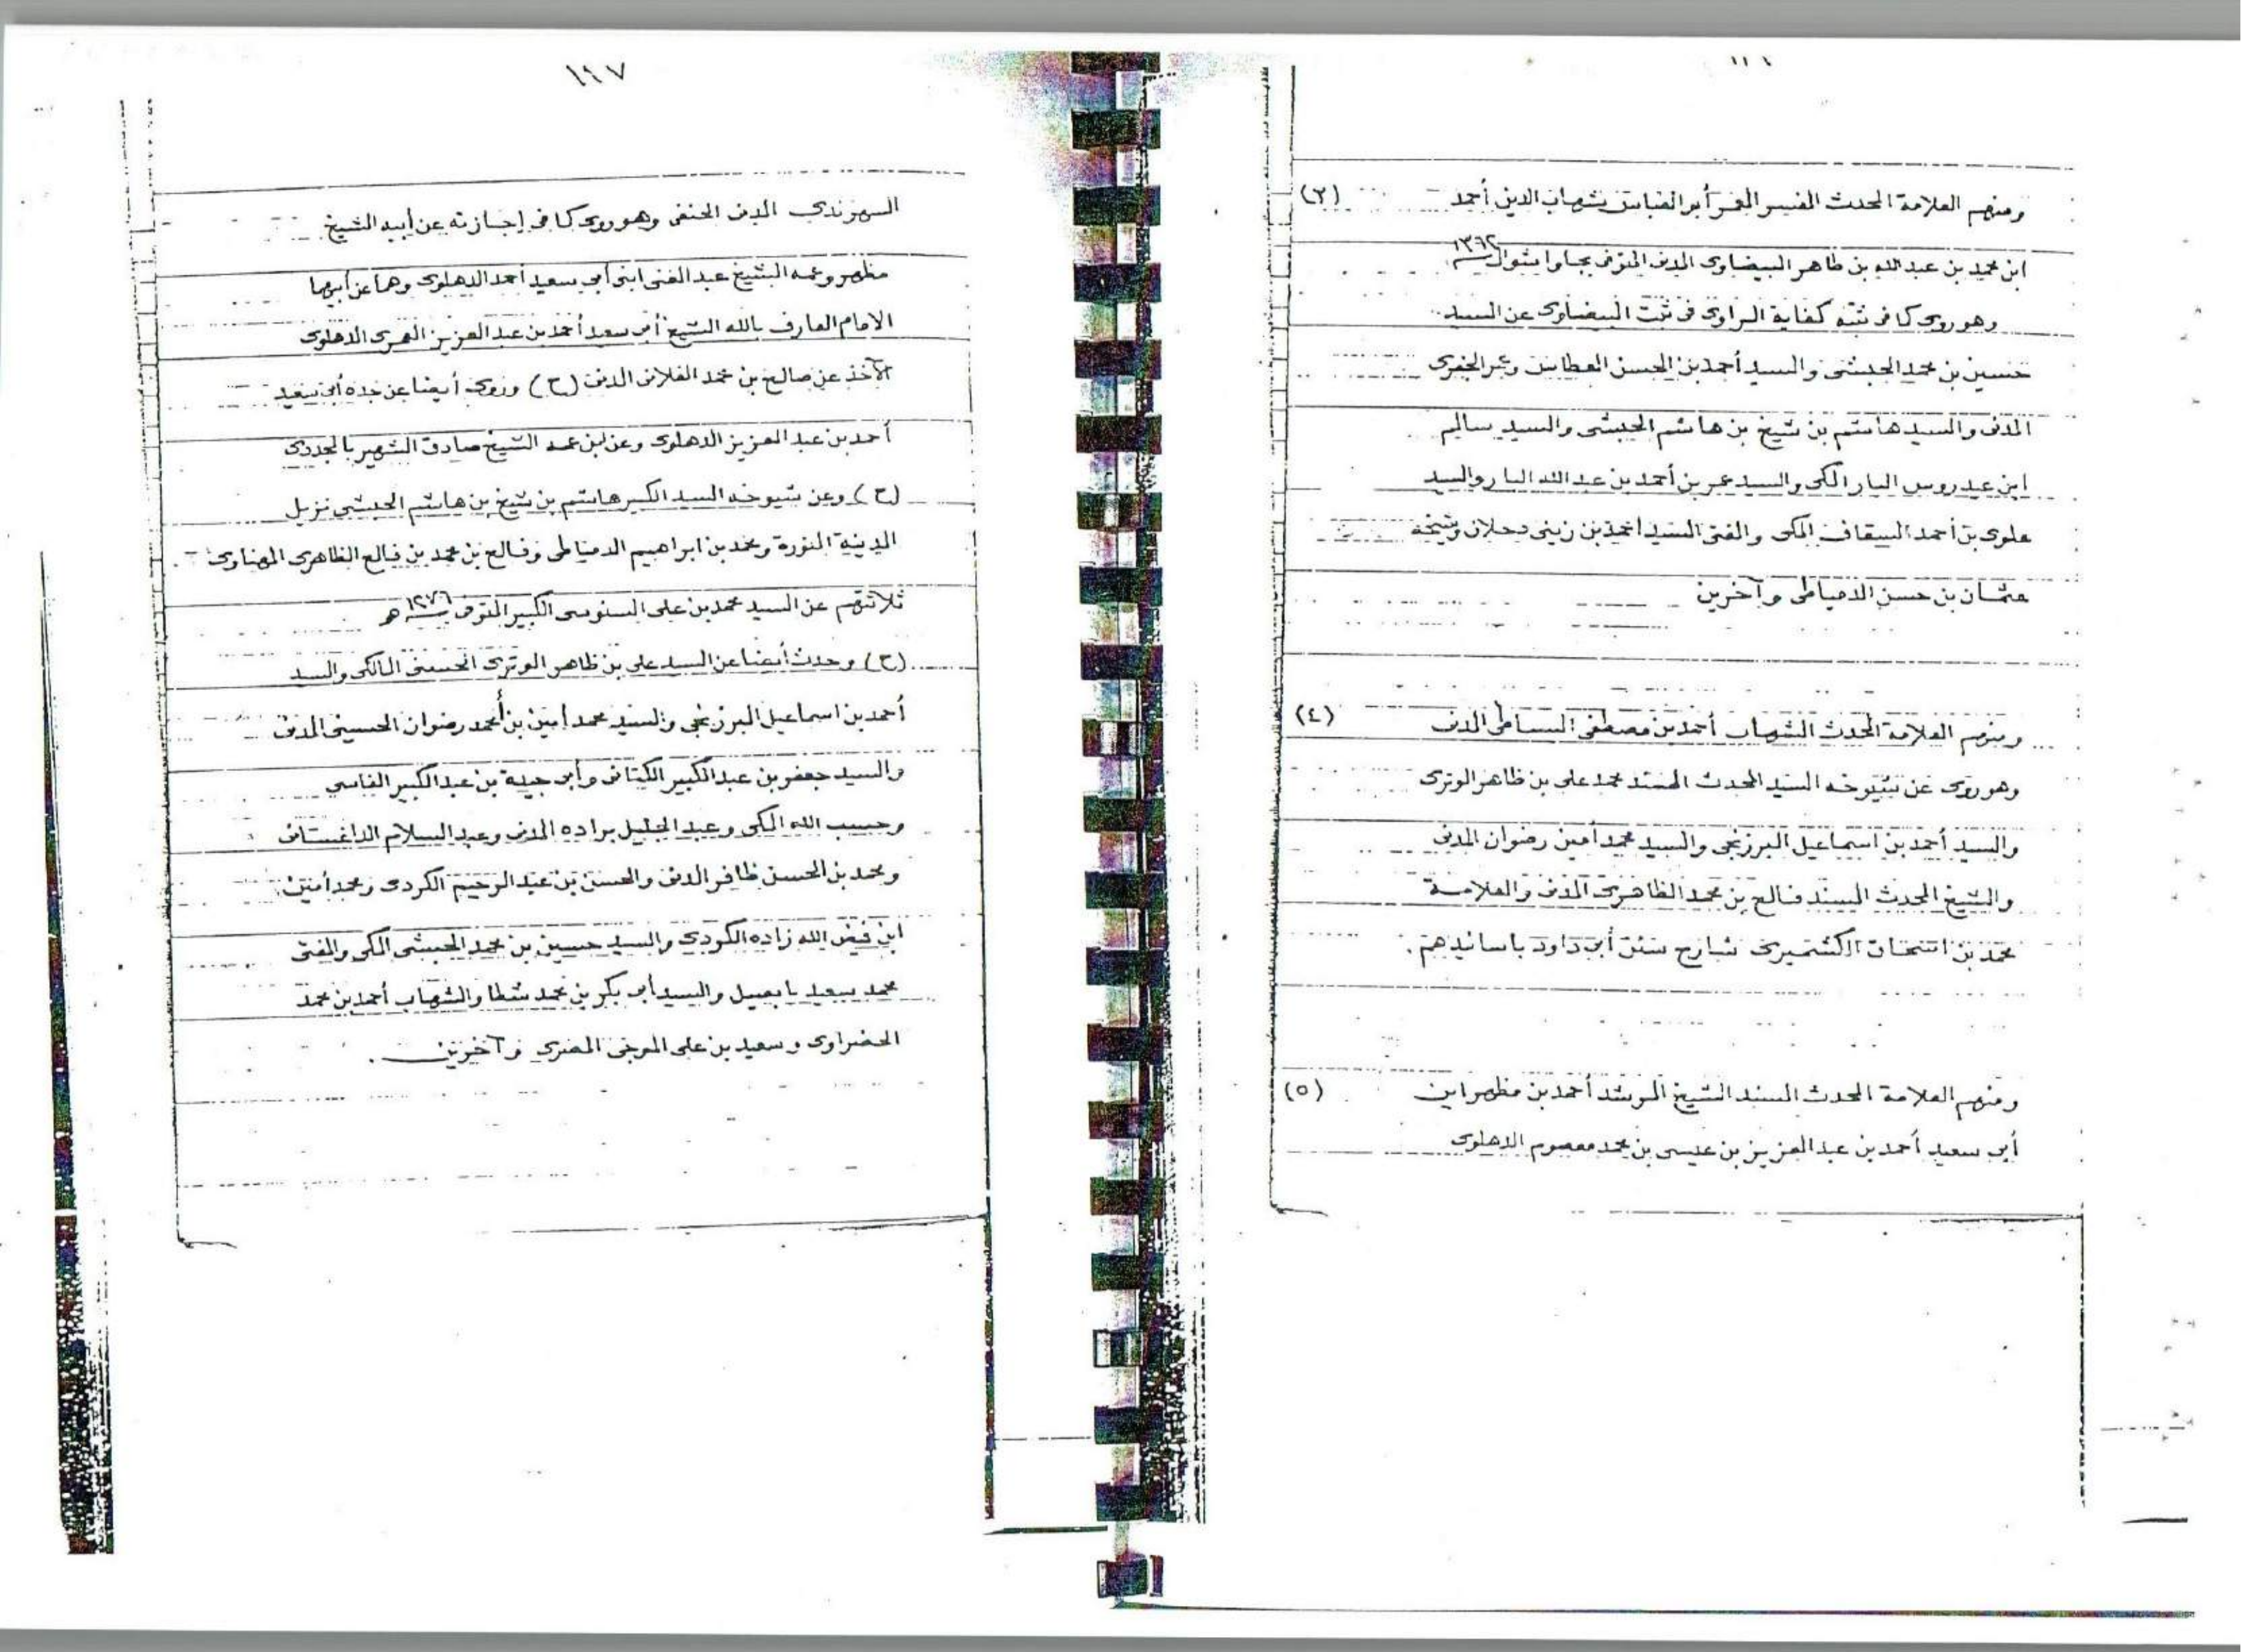 ومنهم العلامة المحدث المفسر المعمر أبو العباس شهاب الدين أحمد (٣)
ابن محمد بن عبد الله بن طاهر البيضاوى المدنى المتوفى بجاوا شوال ١٣٦٢
وهو روى كما فى ثبته كفاية الراوى فى ثبت البيضاوى عن السيد
حسين بن محمد الحبشى والسيد أحمد بن الحسن العطاس وعمر الجفرى
المدنى والسيد هاشم بن شيخ بن هاشم الحبشى والسيد سالم
ابن عيدروس البار المكى والسيد عمر بن أحمد بن عبد الله البار والسيد
علوى بن أحمد السقاف المكى والمفتى السيد أحمد بن زينى دحلان وشيخه
عثمان بن حسن الدمياطى وآخرين
ومنهم العلامة المحدث الشهاب أحمد بن مصطفى البساطى المدنى (٤)
وهو روى عن شيوخه السيد المحدث المسند محمد على بن ظاهر الوترى
والسيد أحمد بن اسماعيل البرزنجى والسيد محمد أمين رضوان المدنى
والشيخ المحدث المسند فالح بن محمد الظاهرى المدنى والعلامة
محمد بن الكشميرى شارح سنن أبى داود باسانيدهم .
ومنهم العلامة المحدث المسند الشيخ المرشد أحمد بن مظهر ابن (٥)
أبى سعيد أحمد بن عبد العزيز بن عيسى بن محمد معصوم الدهلوى
١١٧
السهرندى المدنى الحنفى وهو روى كما فى إجازته عن أبيه الشيخ
مظهر وعمه الشيخ عبد الغنى ابنى أبى سعيد أحمد الدهلوى وهما عن أبيهما
الامام العارف بالله الشيخ أبى سعيد أحمد بن عبد العزيز العمرى الدهلوى
الآخذ عن صالح بن محمد الفلانى المدنى (ح) وروى أيضا عن جده أبى سعيد
أحمد بن عبد العزيز الدهلوى وعن ابن عمه الشيخ صادق الشهير بالمجددى
(ح) وعن شيوخه السيد الكبير هاشم بن شيخ بن هاشم الحبشى نزيل
المدينة المنورة ومحمد بن ابراهيم الدمياطى وفالح بن محمد بن فالح الظاهرى المهناوى
ثلاثتهم عن السيد محمد بن على السنوسى الكبير المتوفى سنة ١٢٧٦ هـ
(ح) وحدث أيضا عن السيد على بن ظاهر الوترى الحسينى المالكى والسيد
أحمد بن اسماعيل البرزنجى والسيد محمد أمين بن أحمد رضوان الحسينى المدنى
والسيد جعفر بن عبد الكبير الكتانى وأبى جيدة بن عبد الكبير الفاسى
وحسب الله المكى وعبد الجليل براده المدنى وعبد السلام الداغستانى
ومحمد بن الحسن ظافر المدنى والحسن بن عبد الرحيم الكردى ومحمد أمين
ابن فيض الله زاده الكردى والسيد حسين بن محمد الحبشى المكى والمفتى
محمد سعيد بابصيل والسيد أبى بكر بن محمد شطا والشهاب أحمد بن محمد
الحضراوى وسعيد بن على الموجى المصرى وآخرين .